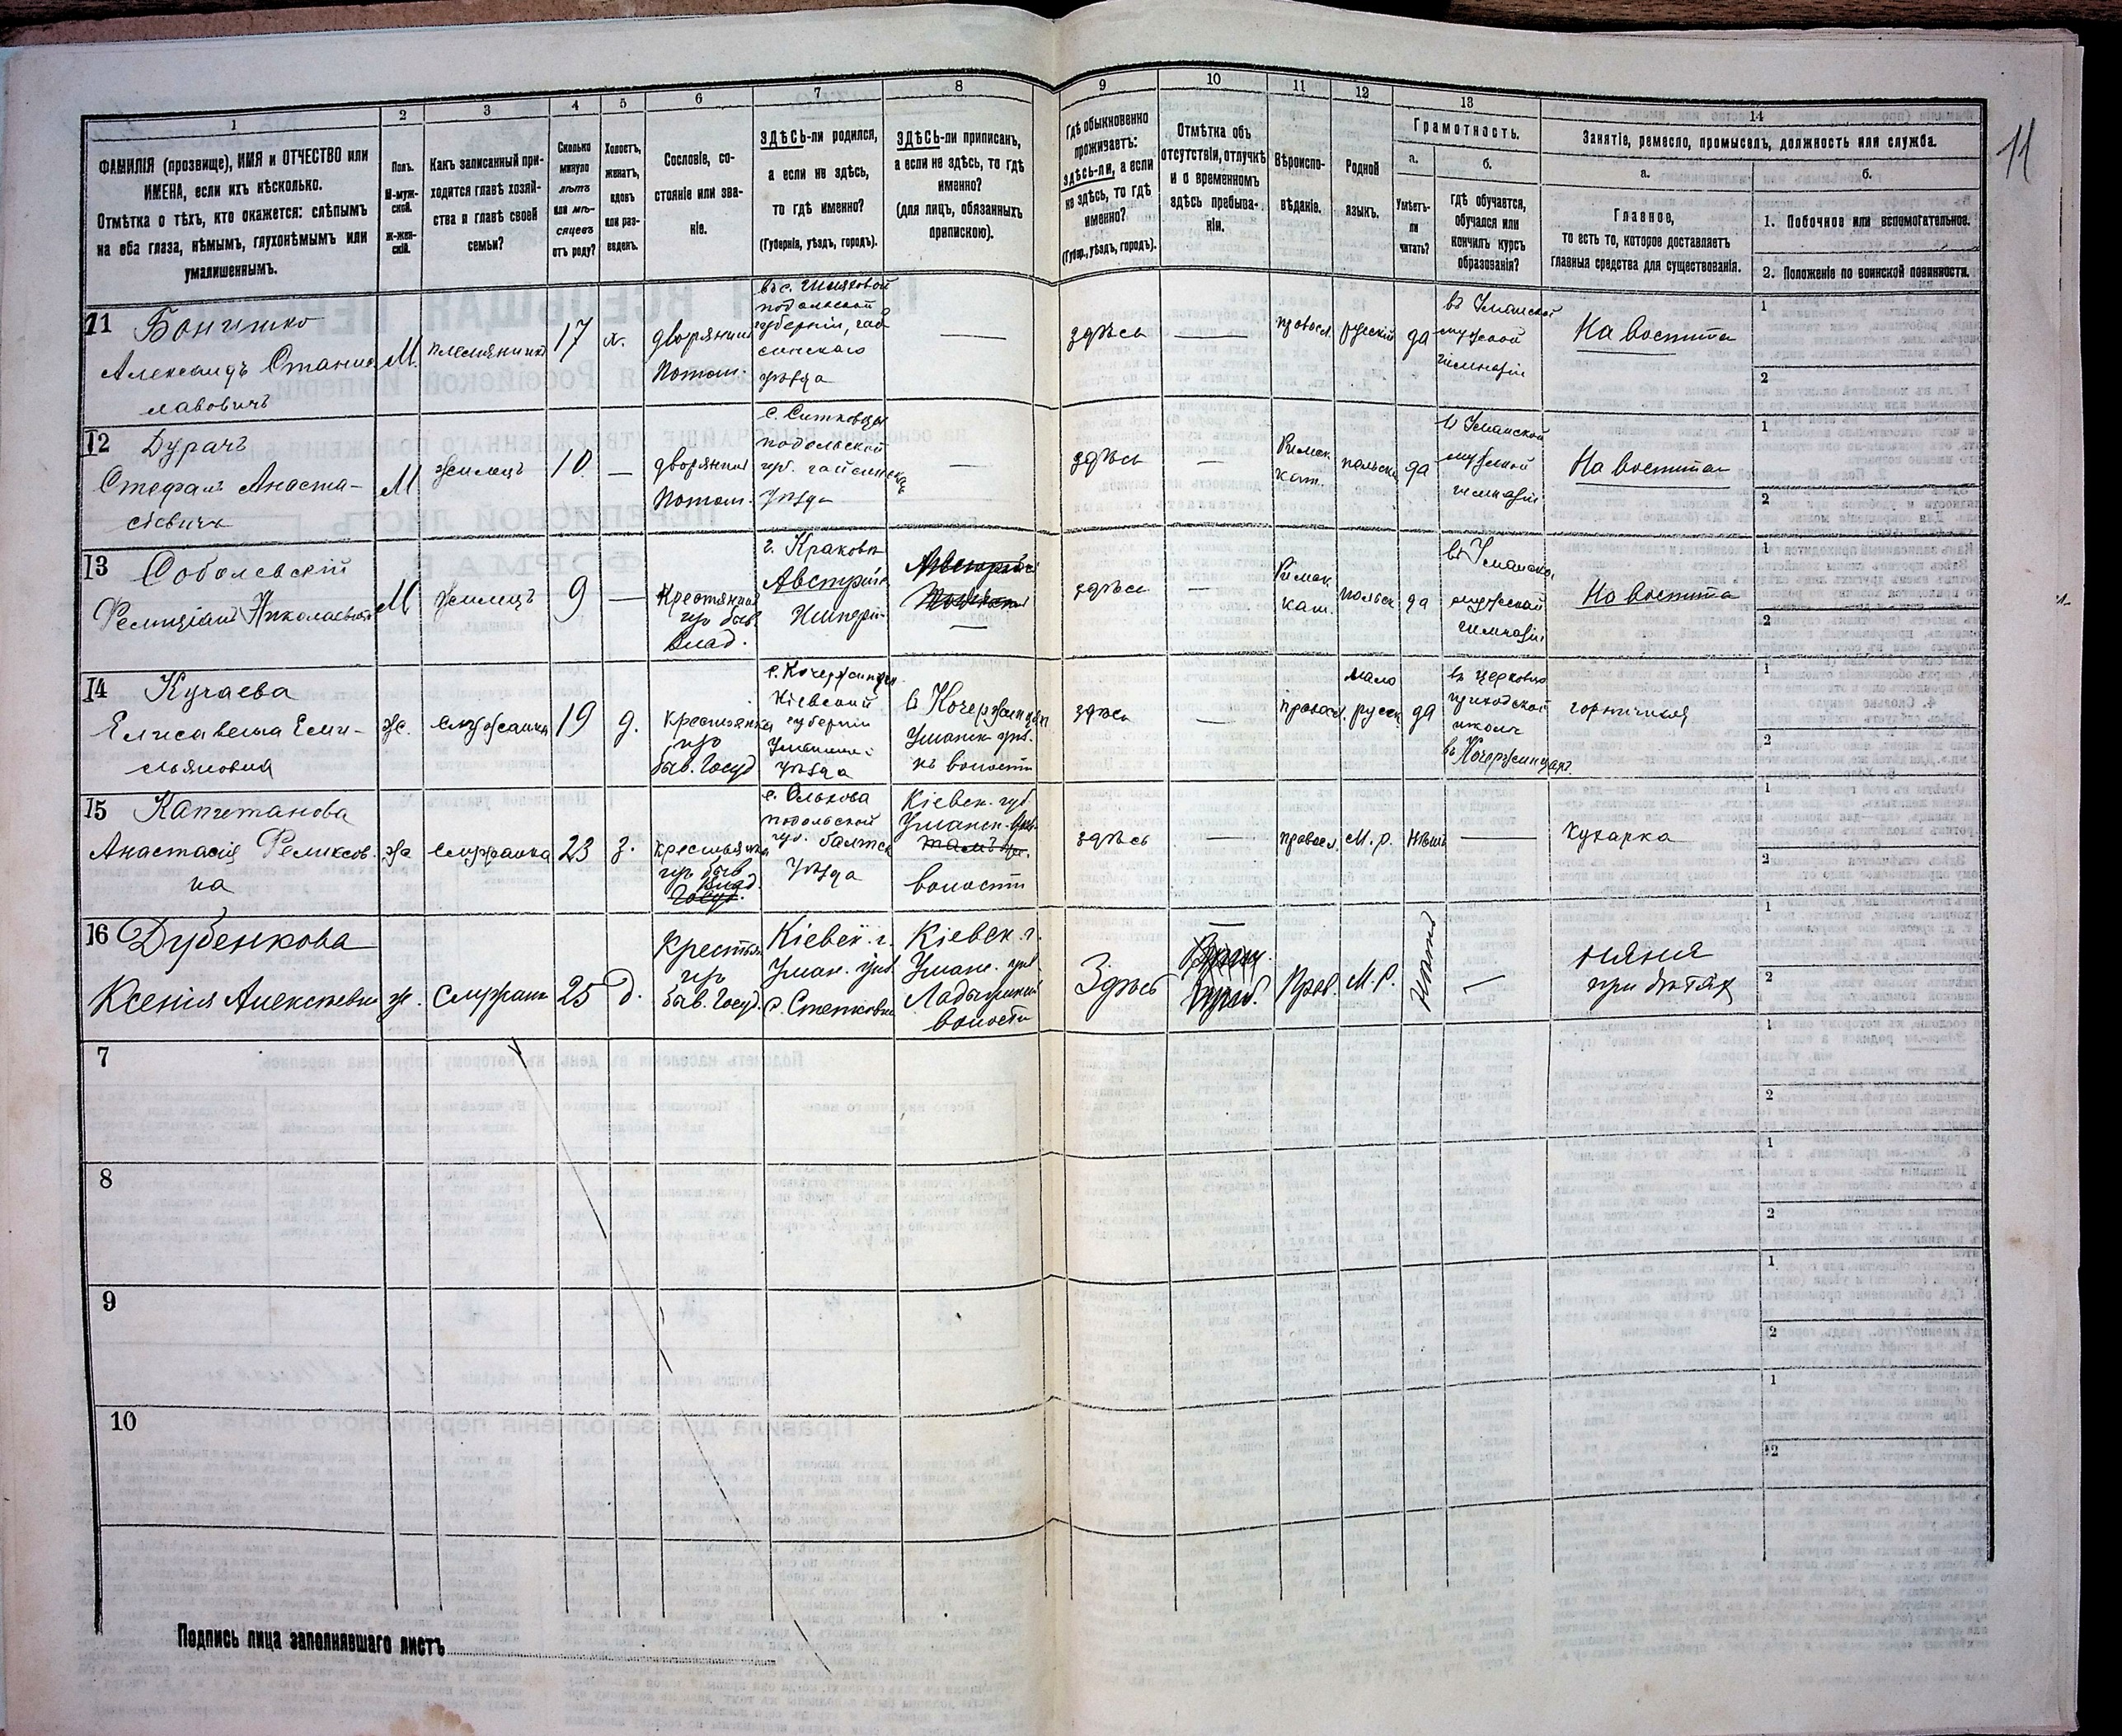 11
1 2 3 4 5 6 7 8 9 10 11 12 13 14
ФАМИЛІЯ (прозвище), ИМЯ и ОТЧЕСТВО или
ИМЕНА, если ихъ нѣсколько.
Отмѣтка о тѣхъ, кто окажется: слѣпымъ
на оба глаза, нѣмымъ, глухонѣмымъ или
умалишеннымъ.
Полъ.
М-муж-
ской.
Ж-жен-
скій.
Какъ записанный при-
ходится главѣ хозяй-
ства и главѣ своей
семьи?
Сколько
минуло
лѣтъ
или мѣ-
сяцевъ
отъ роду?
Холостъ,
женатъ,
вдовъ
или раз-
веденъ.
Сословіе, со-
стояніе или зва-
ніе.
ЗДѢСЬ-ли родился,
а если не здѣсь,
то гдѣ именно?
(Губернія, уѣздъ, городъ).
ЗДѢСЬ-ли приписанъ,
а если не здѣсь, то гдѣ
именно?
(для лицъ, обязанныхъ
припискою).
Гдѣ обыкновенно
проживаетъ:
здѣсь-ли, а если
не здѣсь, то гдѣ
именно?
(Губер., уѣздъ, городъ).
Отмѣтка объ
отсутствіи, отлучкѣ
и о временномъ
здѣсь пребыва-
ніи.
Вѣроиспо-
вѣданіе.
Родной
языкъ.
Грамотность.
а.
Умѣетъ-
ли
читать?
б.
гдѣ обучается,
обучался или
кончилъ курсъ
образованія?
Занятіе, ремесло, промыселъ, должность или служба.
а.
Главное,
то есть то, которое доставляетъ
главныя средства для существованія.
б.
1. Побочное или вспомогательное.
2. Положеніе по воинской повинности.
11
Александъ Станис
лавовичъ
М.
племянникъ
17
х.
дворянинъ
Потом.
подольской
губерніи, гай
синскаго
уѣзда
—
здѣсь
—
правосл.
русскій
да
въ Уманской
мужской
гимназіи
На воспита
1
2
12
Дурачъ
Стефанъ Анаста-
сіевичъ
М
жилецъ
10
—
дворянин
Потом.
с. Ситковцы
подольской
губ. гайсинска
уѣзда
—
здѣсь
—
Римск.
кат.
польски
да
въ Уманской
мужской
гимназіи
На воспитан
1
2
13
Соболевскій
Фелиціанъ Николаевичъ
М
жилецъ
9
—
Крестьянинъ
изъ быв.
влад.
г. Краковъ
Австрійс
Имперіи
—
здѣсь
—
Римск.
кат.
польск.
да
въ Уманско
мужской
гимназіи
На воспита
1
2
14
Кучаева
Елисавета Еми-
льяновна
ж.
служанка
19
д.
крестьянка
изъ
быв. Госуд
с. Кочержинцы
Кіевской
губерніи
Уманска
уѣзда
въ Кочержинцах
Уманск. уѣз.
къ волости
здѣсь
—
правосл.
мало
русск.
да
въ церковно
приходской
школѣ
въ Кочержинцахъ.
горничная
1
2
15
Капитанова
Анастасія Феликсов-
на
ж
служанка
23
з.
крестьянка
изъ быв
влад.
Госуд.
с. Ольхова
подольской
губ. балтск
уѣзда
Кіевск. губ.
Уманск. уѣз.
волости
здѣсь
—
правосл.
М. р.
нѣтъ
—
Кухарка
1
2
16
Дубенкова
Ксенія Алексѣевна
ж.
Служанк
25
д.
Крестьян
изъ
быв. Госуд.
Кіевск. г.
Уман. уѣз.
с. Степковка
Кіевск. г.
Уманс. уѣз.
Ладыжинской
волости
Здѣсь
—
Прав.
М. Р.
—
няня
при дѣтях
1
2
7
1
2
8
1
2
9
1
2
10
1
2
Подпись лица заполнявшаго листъ